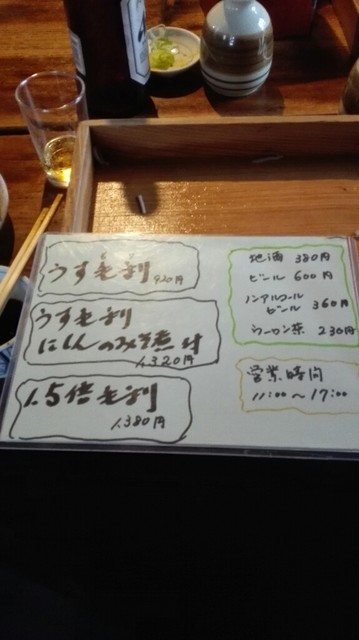 うすもり 920円
うすもり
にしんのみそ煮付
1,320円
1.5倍もり
1,380円
地酒 380円
ビール 600円
ノンアルコール
ビール 360円
ウーロン茶 230円
営業時間
11:00〜17:00